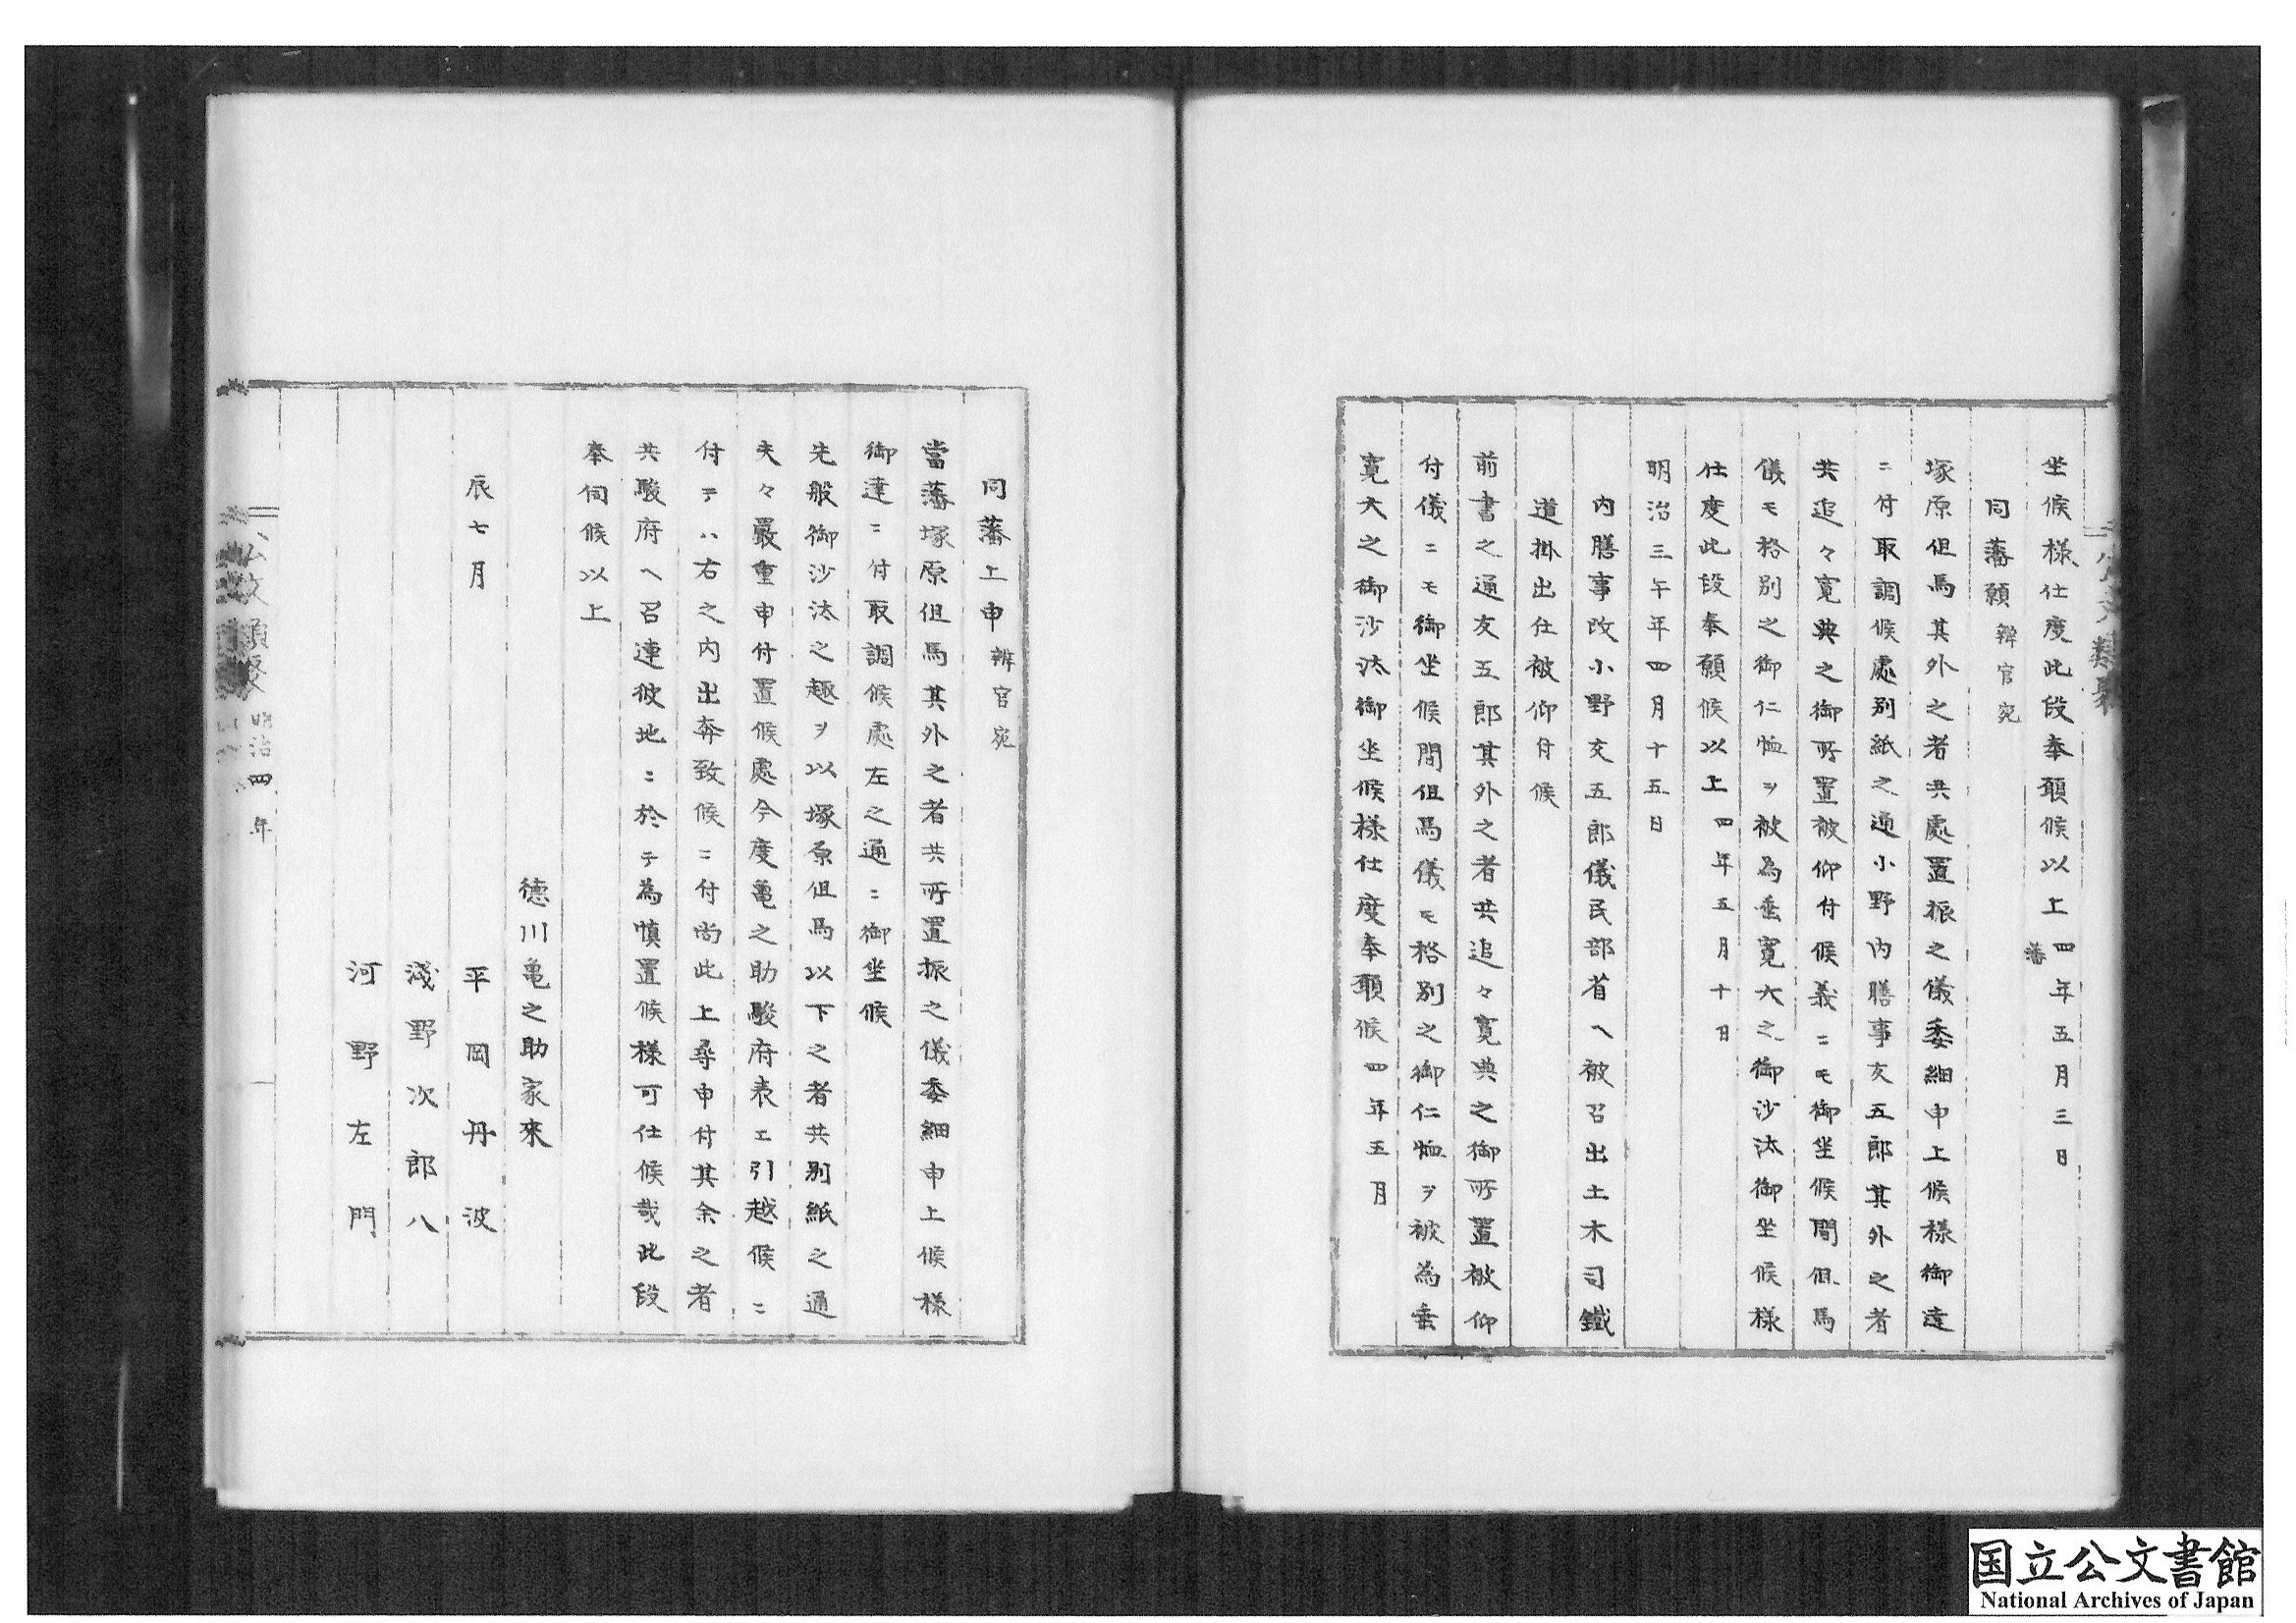 坐候樣仕度此段奉願候以上四年五月三日藩
同藩願辨官宛
塚原但馬其外之者共處置振之儀委細申上候樣御達
ニ付取調候處別紙之通小野内膳事友五郎其外之者
共追々寛典之御所置被仰付候義ニモ御坐候間但馬
儀モ格別之御仁恤ヲ被為垂寛大之御沙汰御坐候様
仕度此段奉願候以上四年五月十日
明治三午年四月十五日
内膳事改小野友五郎儀民部省ヘ被召出土木司鐵
道掛出仕被仰付候
前書之通友五郎其外之者共追々寛典之御所置被仰
付儀ニモ御坐候間但馬儀モ格別之御仁恤ヲ被為垂
寛大之御沙汰御坐候様仕度奉願候四年五月
同藩上申辨官宛
當藩塚原但馬其外之者共所置振之儀委細申上候様
御達ニ付取調候處左之通ニ御坐候
先般御沙汰之趣ヲ以塚原但馬以下之者共別紙之通
夫々嚴重申付置候處今度亀之助駿府表エ引越候ニ
付テハ右之内出奔致候ニ付尚此上尋申付其余之者
共駿府ヘ召連彼地ニ於テ為慎置候様可仕候哉此段
奉伺候以上
徳川亀之助家來
辰七月 平岡丹波
淺野次郎八
河野左門
公文類聚明治四年
国立公文書館
National Archives of Japan